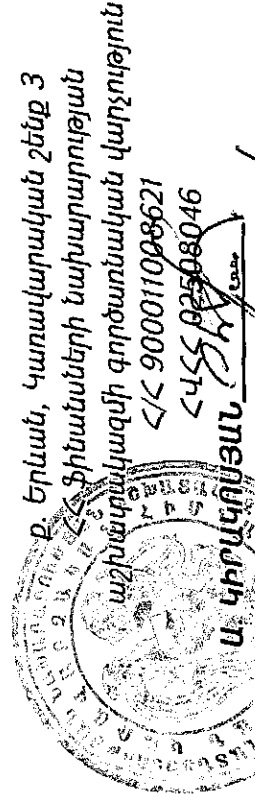 ք. Երևան, Կառավարական շենք 3
ՀՀ Ֆինանսների նախարարության
աշխատակազմի գործառնական վարչություն
Հ/Հ 900011008621
ՀՎՀՀ 02508046
Ա. ԿԻՐԱԿՈՍՅԱՆ